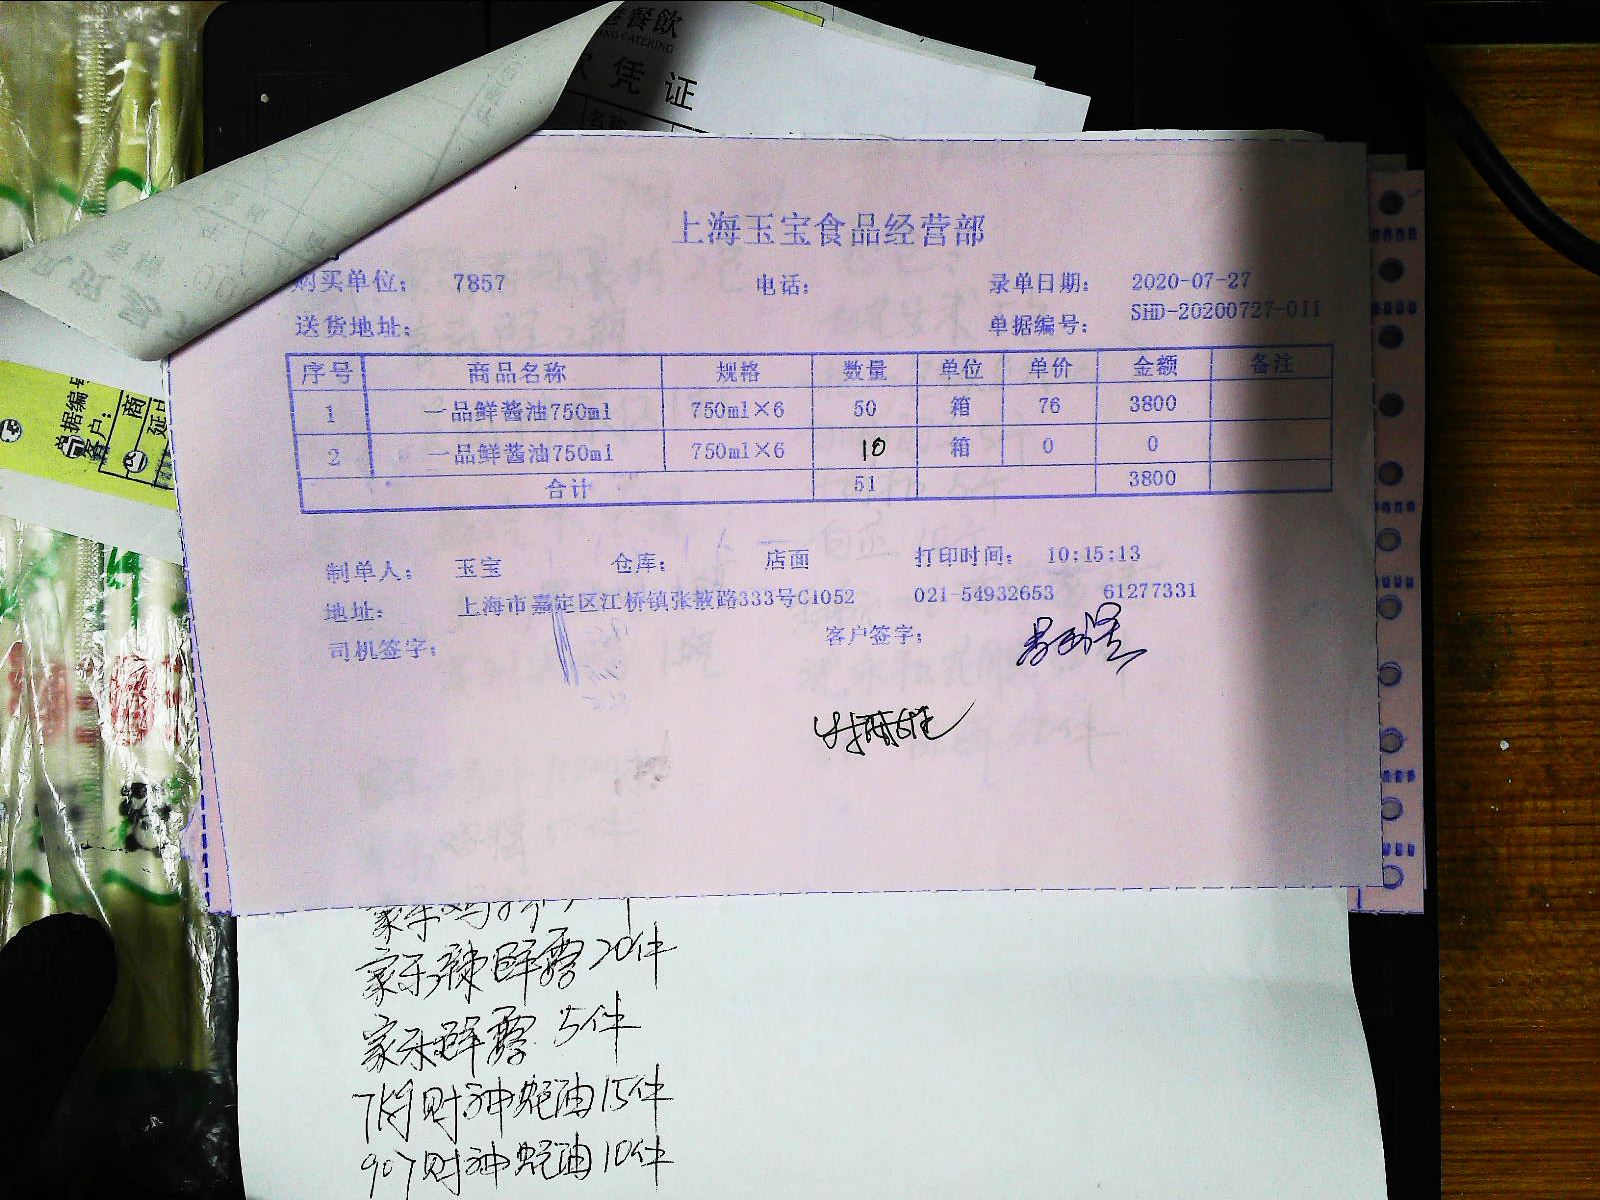 餐饮
CATERING
凭证
名称
单据编号
客户：
商
上海玉宝食品经营部
购买单位： 7857 电话： 录单日期： 2020-07-27
送货地址： 单据编号： SHD-20200727-011
序号 商品名称 规格 数量 单位 单价 金额 备注
1 一品鲜酱油750ml 750ml×6 50 箱 76 3800
2 一品鲜酱油750ml 750ml×6 10 箱 0 0
合计 51 3800
制单人： 玉宝 仓库： 店面 打印时间： 10:15:13
地址： 上海市嘉定区江桥镇张掖路333号C1052 021-54932653 61277331
司机签字： 客户签字：
家乐辣鲜露20件
家乐鲜露 5件
7kg财神蚝油15件
907财神蚝油10件